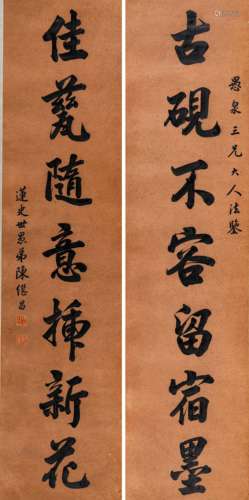 愚泉三兄大人法鑒
古硯不容留宿墨
佳甆隨意揷新花
蓮史世愚弟陳繼昌